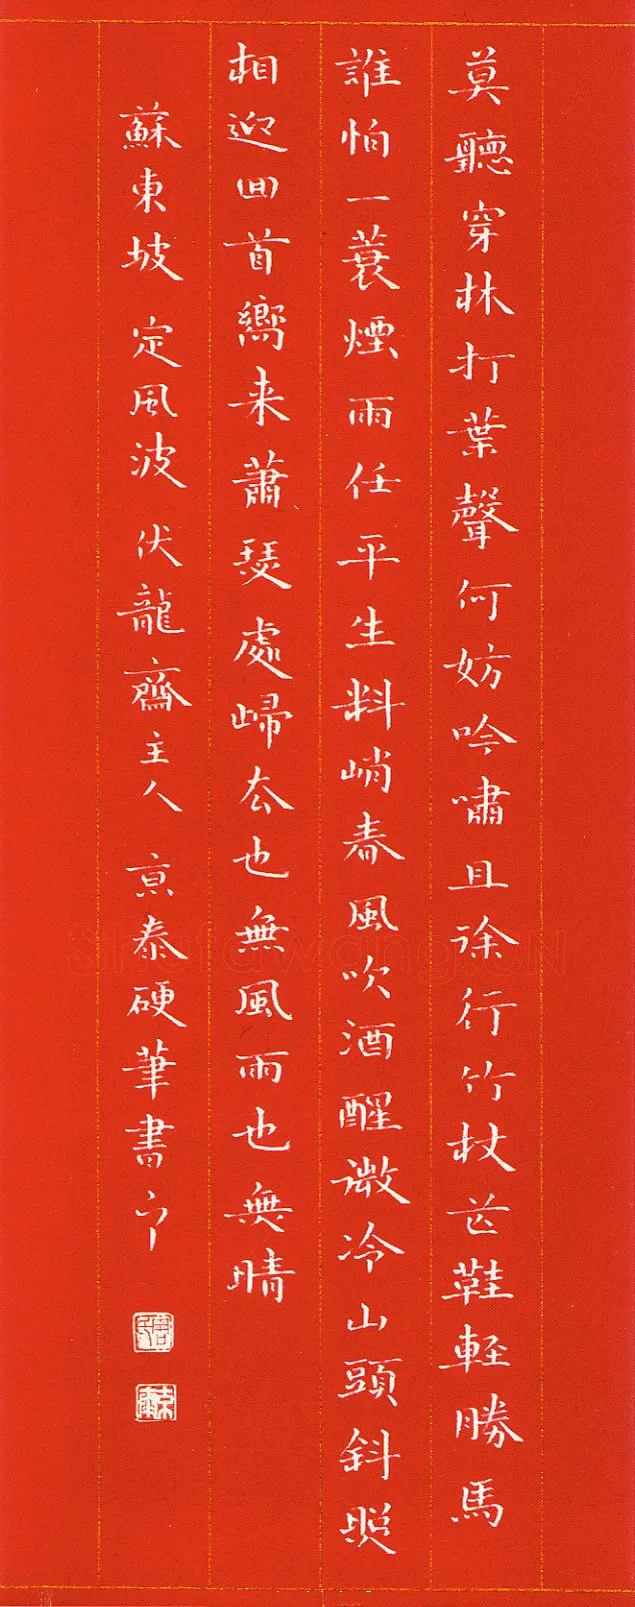 莫聽穿林打葉聲何妨吟嘯且徐行竹杖芒鞋輕勝馬
誰怕一蓑煙雨任平生料峭春風吹酒醒微冷山頭斜照
相迎回首嚮来蕭瑟處歸去也無風雨也無晴
蘇東坡 定風波 伏龍齋主人 京泰硬筆書